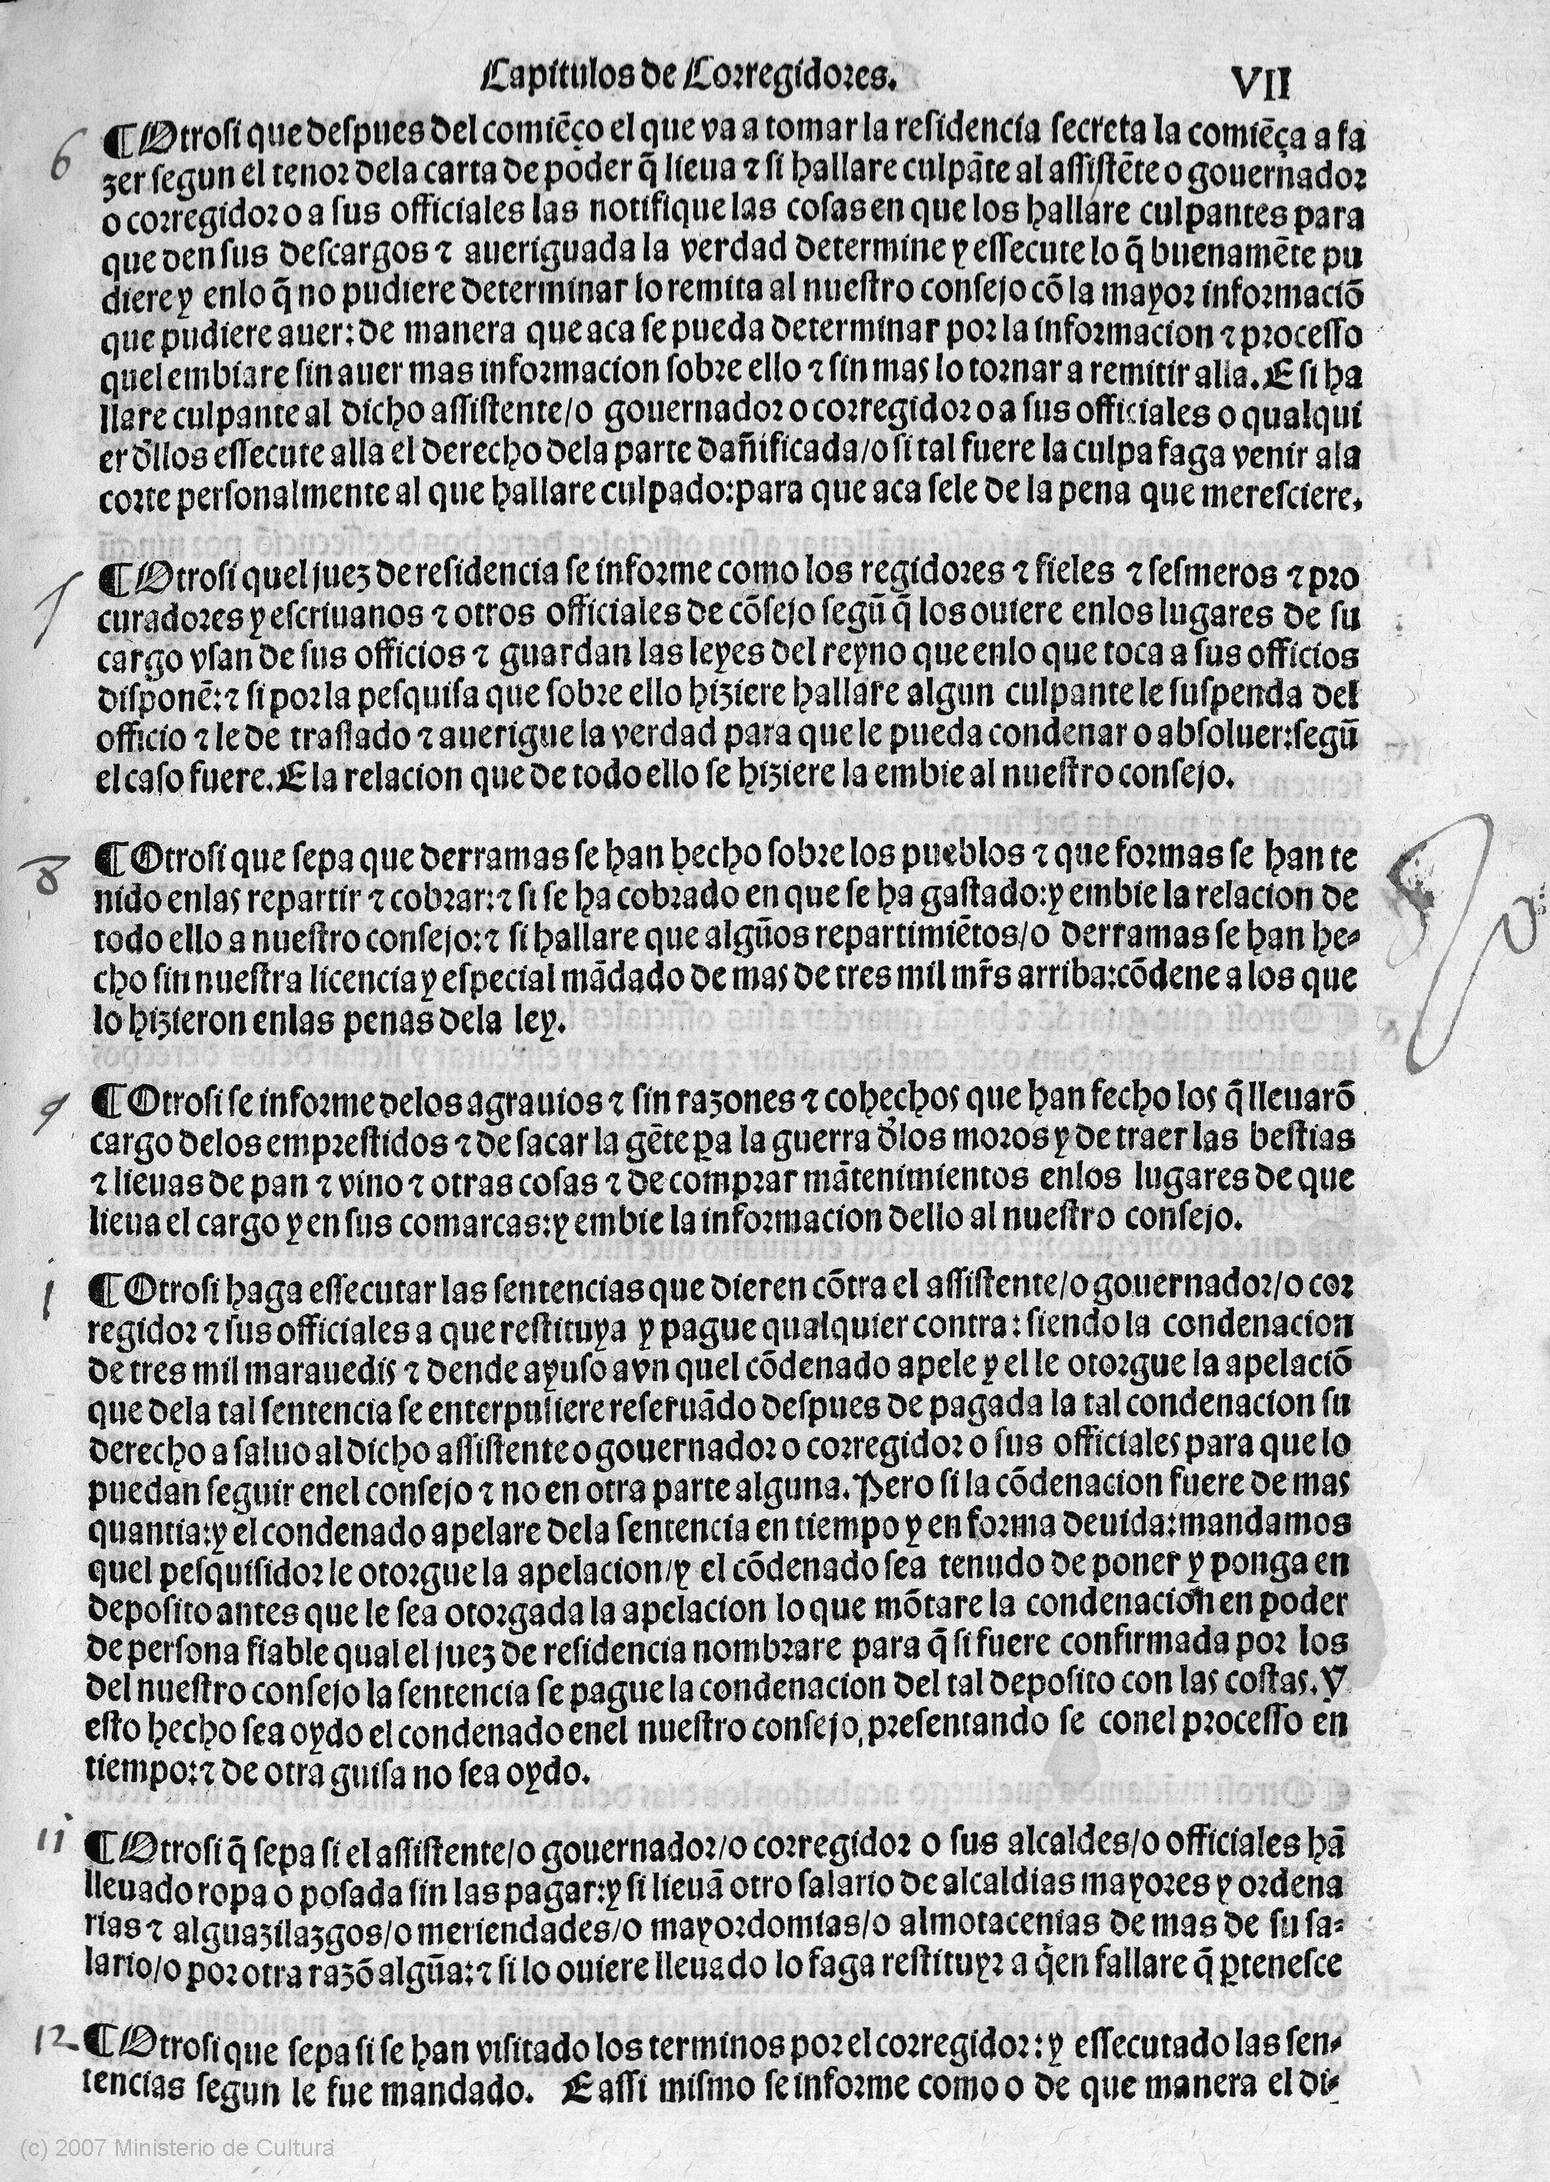 Capitulos de Corregidores. VII
6 ¶ Otrosi que despues del comiẽço el que va a tomar la residencia secreta la comiẽça a fa
zer segun el tenor dela carta de poder q̃ lieua ⁊ si hallare culpãte al assistẽte o gouernador
o corregidor o a sus officiales las notifique las cosas en que los hallare culpantes para
que den sus descargos ⁊ aueriguada la verdad determine y essecute lo q̃ buenamẽte pu
diere y enlo q̃ no pudiere determinar lo remita al nuestro consejo cõ la mayor informaciõ
que pudiere auer: de manera que aca se pueda determinar por la informacion ⁊ processo
quel embiare sin auer mas informacion sobre ello ⁊ sin mas lo tornar a remitir alla. E si ha
llare culpante al dicho assistente/o gouernador o corregidor o a sus officiales o qualqui
er d̃llos essecute alla el derecho dela parte dañificada/o si tal fuere la culpa faga venir ala
corte personalmente al que hallare culpado: para que aca sele de la pena que meresciere.
7 ¶ Otrosi quel juez de residencia se informe como los regidores ⁊ fieles ⁊ sesmeros ⁊ pro
curadores y escriuanos ⁊ otros officiales de cõsejo segũ q̃ los ouiere enlos lugares de su
cargo vsan de sus officios ⁊ guardan las leyes del reyno que enlo que toca a sus officios
disponẽ: ⁊ si por la pesquisa que sobre ello hiziere hallare algun culpante le suspenda del
officio ⁊ le de traslado ⁊ auerigue la verdad para que le pueda condenar o absoluer: segũ
el caso fuere. E la relacion que de todo ello se hiziere la embie al nuestro consejo.
8 ¶ Otrosi que sepa que derramas se han hecho sobre los pueblos ⁊ que formas se han te
nido enlas repartir ⁊ cobrar: ⁊ si se ha cobrado en que se ha gastado: y embie la relacion de
todo ello a nuestro consejo: ⁊ si hallare que algũos repartimiẽtos/o derramas se han he-
cho sin nuestra licencia y especial mãdado de mas de tres mil mr̃s arriba: cõdene a los que
lo hizieron enlas penas dela ley.
9 ¶ Otrosi se informe delos agrauios ⁊ sin razones ⁊ cohechos que han fecho los q̃ lleuarõ
cargo delos emprestidos ⁊ de sacar la gẽte ꝑa la guerra d̃los moros y de traer las bestias
⁊ lieuas de pan ⁊ vino ⁊ otras cosas ⁊ de comprar mãtenimientos enlos lugares de que
lieua el cargo y en sus comarcas: y embie la informacion dello al nuestro consejo.
1 ¶ Otrosi haga essecutar las sentencias que dieren cõtra el assistente/o gouernador/o cor
regidor ⁊ sus officiales a que restituya y pague qualquier contra: siendo la condenacion
de tres mil marauedis ⁊ dende ayuso avn quel cõdenado apele y el le otorgue la apelaciõ
que dela tal sentencia se enterpusiere reseruãdo despues de pagada la tal condenacion su
derecho a saluo al dicho assistente o gouernador o corregidor o sus officiales para que lo
puedan seguir enel consejo ⁊ no en otra parte alguna. Pero si la cõdenacion fuere de mas
quantia: y el condenado apelare dela sentencia en tiempo y en forma deuida: mandamos
quel pesquisidor le otorgue la apelacion/y el cõdenado sea tenudo de poner y ponga en
deposito antes que le sea otorgada la apelacion lo que mõtare la condenacion en poder
de persona fiable qual el juez de residencia nombrare para q̃ si fuere confirmada por los
del nuestro consejo la sentencia se pague la condenacion del tal deposito con las costas. Y
esto hecho sea oydo el condenado enel nuestro consejo, presentando se conel processo en
tiempo: ⁊ de otra guisa no sea oydo.
11 ¶ Otrosi q̃ sepa si el assistente/o gouernador/o corregidor o sus alcaldes/o officiales hã
lleuado ropa o posada sin las pagar: y si lieuã otro salario de alcaldias mayores y ordena
rias ⁊ alguazilazgos/o meriendades/o mayordomias/o almotacenias de mas de su sa-
lario/o por otra razõ algũa: ⁊ si lo ouiere lleuado lo faga restituyr a q̃en fallare q̃ ꝑtenesce
12 ¶ Otrosi que sepa si se han visitado los terminos por el corregidor: y essecutado las sen-
tencias segun le fue mandado. E assi mismo se informe como o de que manera el di-
(c) 2007 Ministerio de Cultura